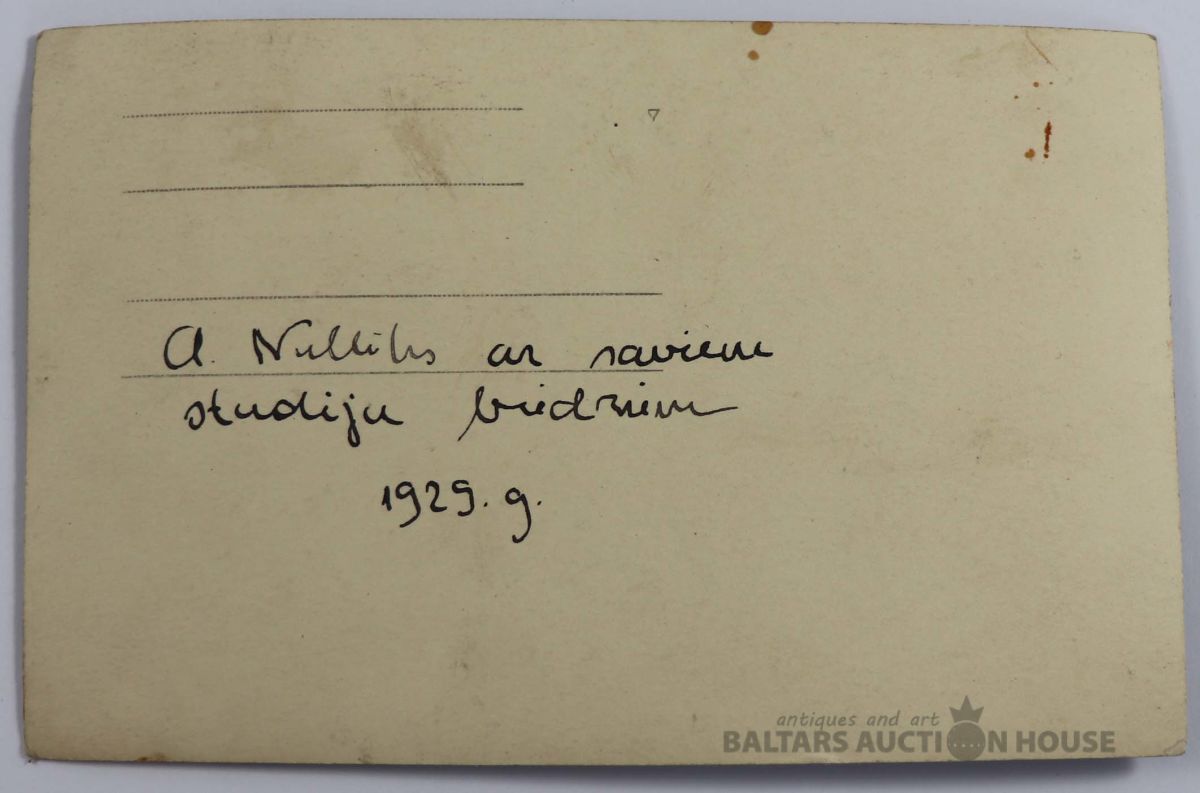 A. Nullihs ar saviem
studiju biedriem
1929. g.
antiques and art
BALTARS AUCTION HOUSE